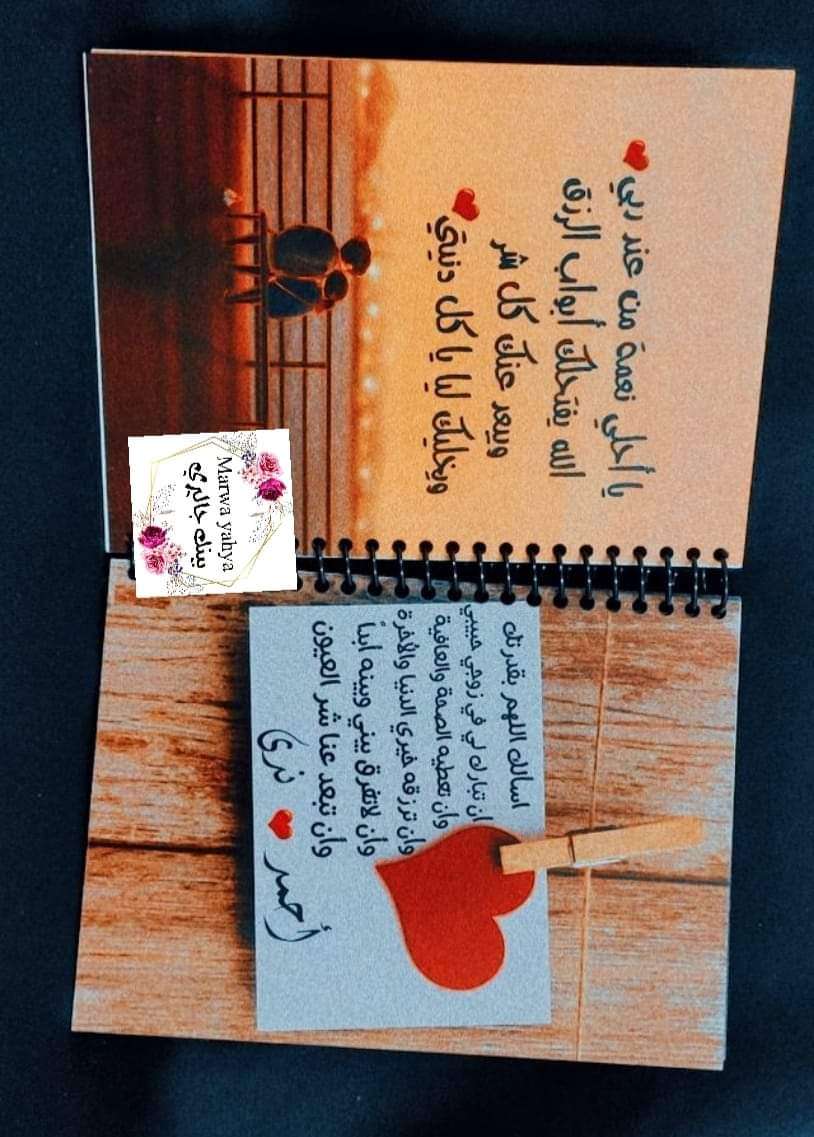 يا أحلي نعمة من عند ربي
الله يفتحلك أبواب الرزق
ويبعد عنك كل شر
ويخليك ليا يا كل دنيتي
Marwa yahya
بينك جاليري
اسالك اللهم بقدرتك
ان تبارك لي في زوجي حبيبي
وان تعطيه الصحة والعافية
وان ترزقه خيري الدنيا والآخرة
وان لاتفرق بيني وبينه ابداً
وان تبعد عنا شر العيون
أحمد ندى